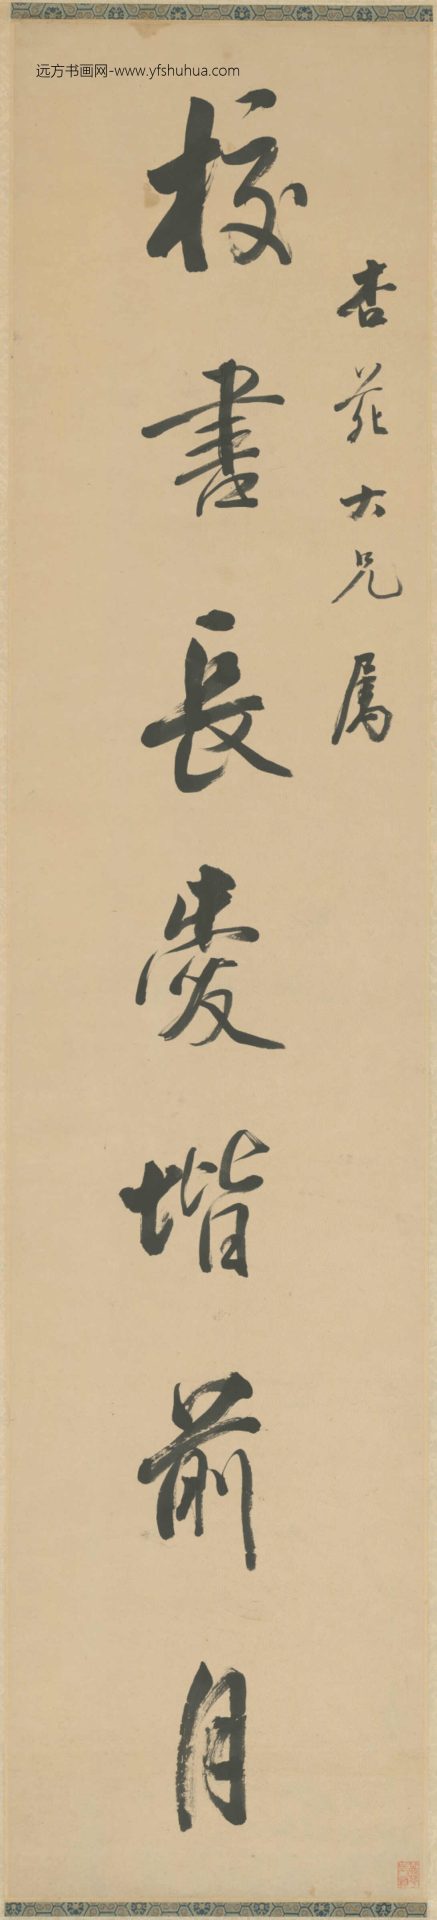 远方书画网-www.yfshuhua.com
杏苑大兄属
校書長愛堦前月